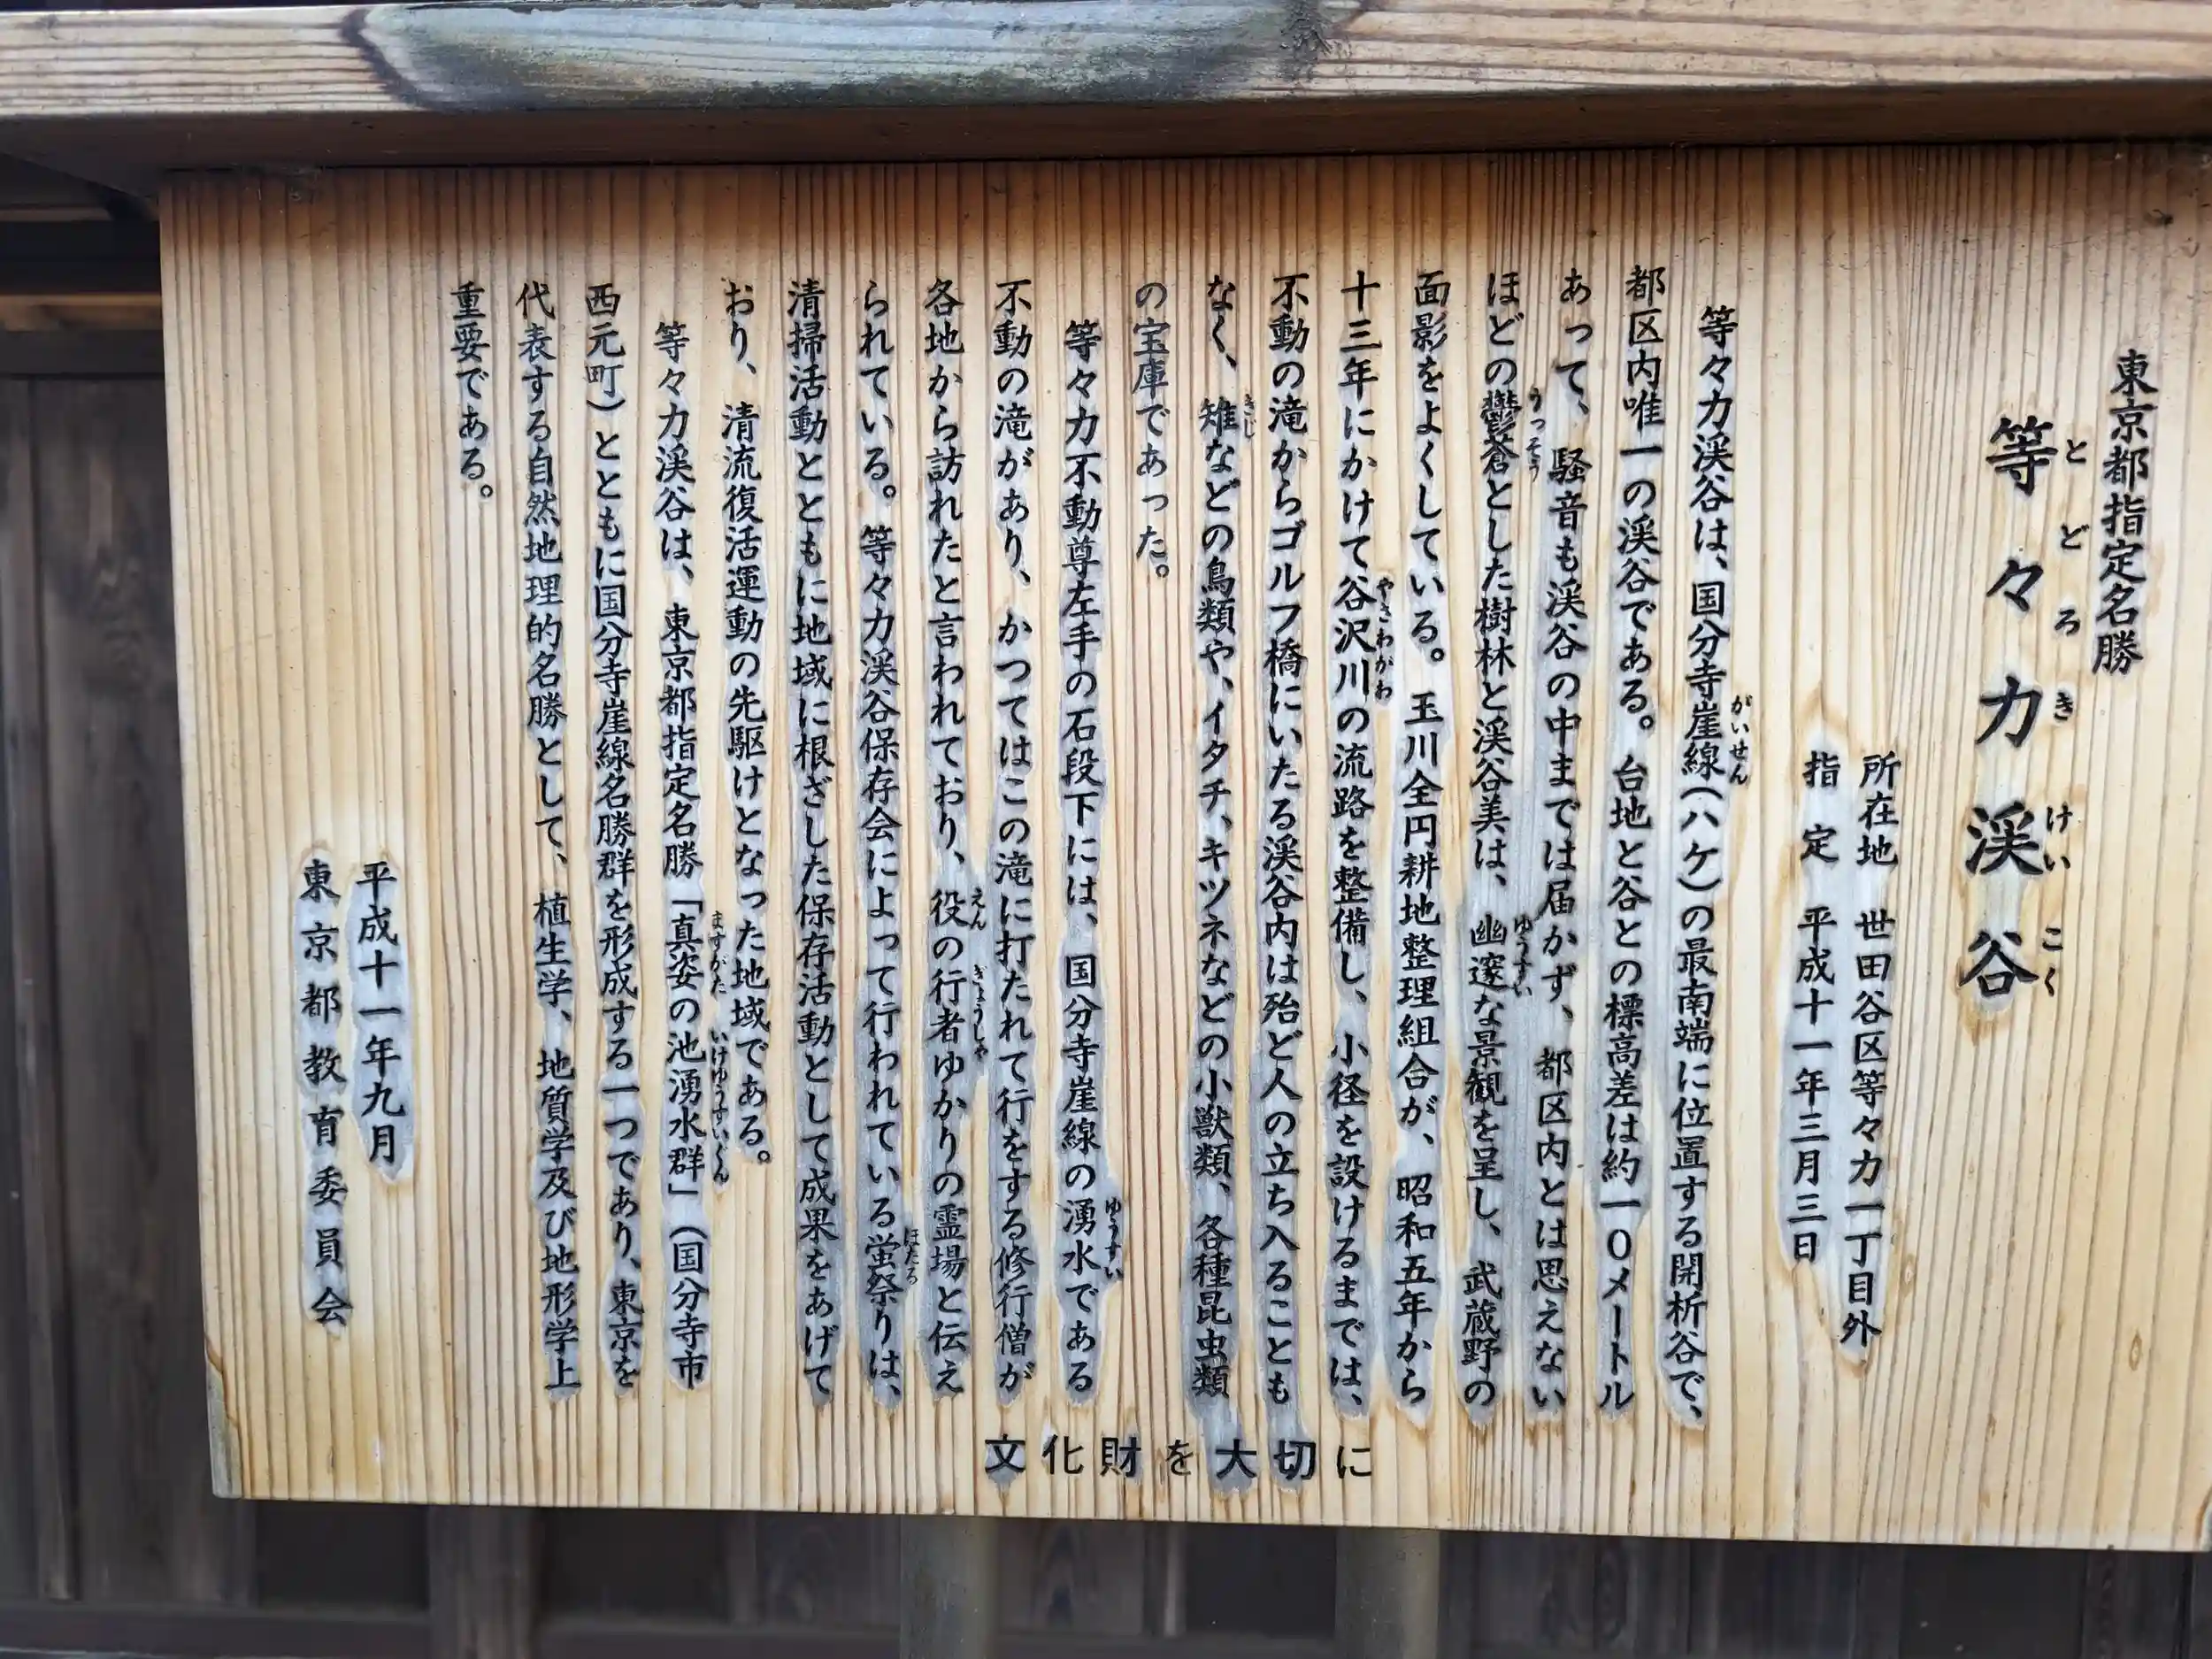 東京都指定名勝
等々力渓谷
とどろきけいこく
所在地 世田谷区等々力一丁目外
指定 平成十一年三月三日
等々力渓谷は、国分寺崖線(ハケ)の最南端に位置する開析谷で、
がいせん
都区内唯一の渓谷である。台地と谷との標高差は約一〇メートル
あって、騒音も渓谷の中までは届かず、都区内とは思えない
ほどの鬱蒼とした樹林と渓谷美は、幽邃な景観を呈し、武蔵野の
うっそう ゆうすい
面影をよくしている。玉川全円耕地整理組合が、昭和五年から
十三年にかけて谷沢川の流路を整備し、小径を設けるまでは、
やざわがわ
不動の滝からゴルフ橋にいたる渓谷内は殆ど人の立ち入ることも
なく、雉などの鳥類や、イタチ、キツネなどの小獣類、各種昆虫類
きじ
の宝庫であった。
等々力不動尊左手の石段下には、国分寺崖線の湧水である
ゆうすい
不動の滝があり、かつてはこの滝に打たれて行をする修行僧が
各地から訪れたと言われており、役の行者ゆかりの霊場と伝え
えん ぎょうしゃ
られている。等々力渓谷保存会によって行われている蛍祭りは、
ほたる
清掃活動とともに地域に根ざした保存活動として成果をあげて
おり、清流復活運動の先駆けとなった地域である。
等々力渓谷は、東京都指定名勝「真姿の池湧水群」(国分寺市
ますがた いけゆうすいぐん
西元町)とともに国分寺崖線名勝群を形成する一つであり、東京を
代表する自然地理的名勝として、植生学、地質学及び地形学上
重要である。
平成十一年九月
東京都教育委員会
文化財を大切に